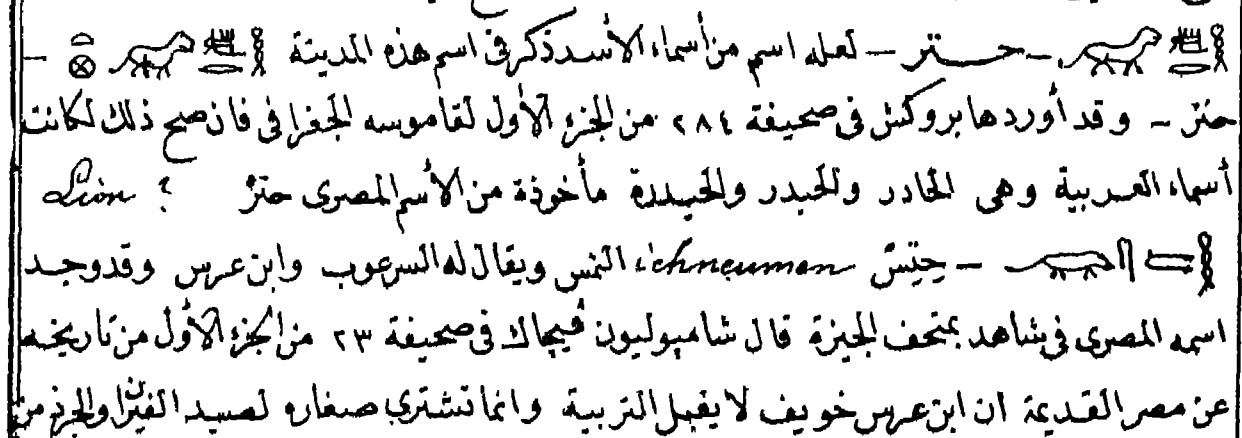 𓎛𓍘𓂋𓃬 – حـتر – لعله اسم من أسماء الأسد ذكر فى اسم هذه المدينة –
حتر – وقد أوردها بروكش فى صحيفة ٢٨٤ من الجزء الأول لقاموسه الجغرافى فان صح ذلك لكانت
أسماء العربية وهى الخادر والحيدر والحيدرة مأخوذة من الأسم المصرى حتر ? Lion
– حِتِسْ ichneumon، النمس ويقال له السرعوب وابن عرس وقد وجد
اسمه المصرى فى شاهد بمتحف الجيزة قال شامبوليون فيجاك فى صحيفة ٢٣ من الجزء الأول من تاريخه
عن مصر القديمة ان ابن عرس خويف لا يقبل التربية وانما تشترى صغاره لصيد الفيران والجرذ من